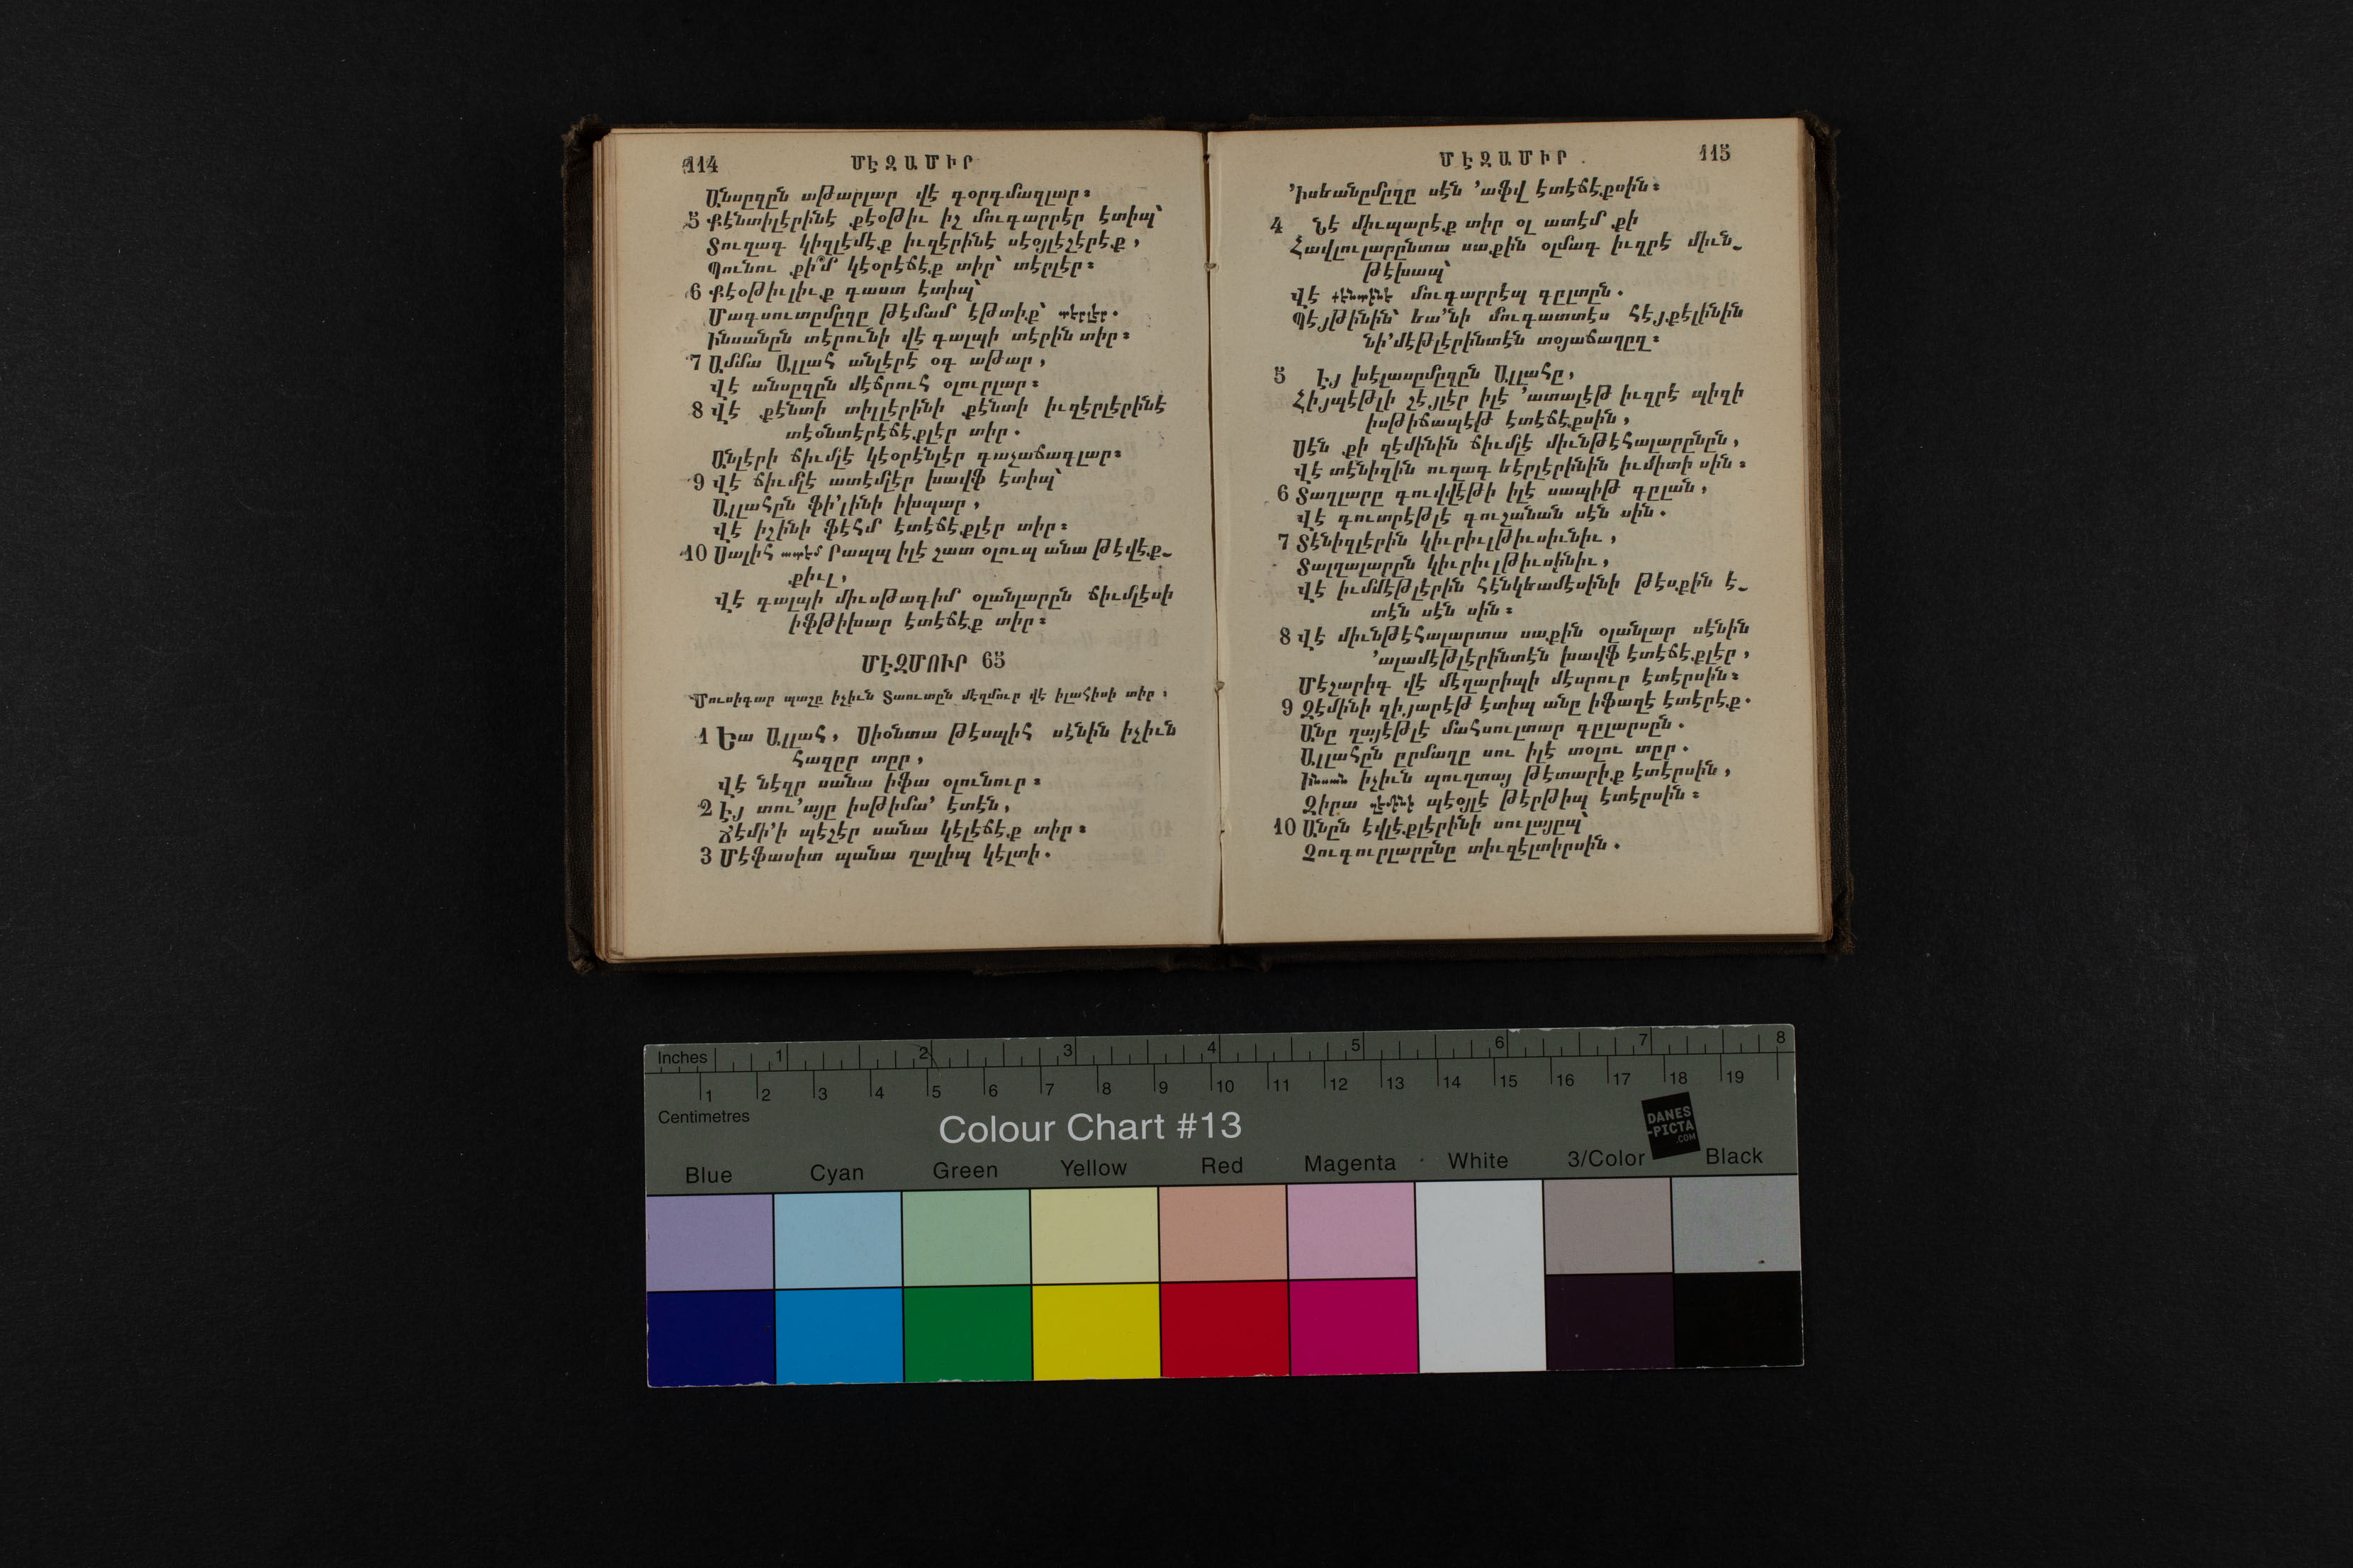 114 ՄԷԶԱՄԻՐ
Անսըզըն աթարլար վէ գօրգմազլար։
5 Քէնտիլէրինէ քէօթիւ իչ մուգարրէր էտիպ՝
Տուզագ կիզլէմէք իւզէրինէ սէօյլէշէրէք,
Պունու քի՞մ կէօրէճէք տիր՝ տէրլէր։
6 Քէօթիւլիւք գաստ էտիպ՝
Մագսուտըմըզը թէմամ էթտիք՝ տէրլէր.
Ինսանըն տէրունի վէ գալպի տէրին տիր։
7 Ամմա Ալլահ անլէրէ օգ աթար,
Վէ անսըզըն մէճրուհ օլուրլար։
8 Վէ քէնտի տիլլէրինի քէնտի իւզէրլէրինէ
տէօնտէրէճէքլէր տիր.
Անլէրի ճիւմլէ կէօրէնլէր գաչաճագլար։
9 Վէ ճիւմլէ ատէմլէր խավֆ էտիպ՝
Ալլահըն ֆի՚լինի իխպար,
Վէ իշինի ֆէհմ էտէճէքլէր տիր։
10 Սալիհ ատէմ Րապպ իլէ շատ օլուպ անա թէվէք֊
քիւլ,
Վէ գալպի միւսթագիմ օլանլարըն ճիւմլէսի
իֆթիխար էտէճէք տիր։
ՄԷԶՄՈՒՐ 65
Մուսիգար պաշը իչիւն Տաուտըն մէզմուր վէ իլահիսի տիր։
1 Եա Ալլահ, Սիօնտա թէսպիհ սէնին իչիւն
հազըր տըր,
Վէ նէզր սանա իֆա օլունուր։
2 Էյ տու՚այը իսթիմա՚ էտէն,
Ճէմի՚ի պէշէր սանա կէլէճէք տիր։
3 Մէֆասիտ պանա ղալիպ կէլտի.
ՄԷԶԱՄԻՐ 115
՚Իսեանըմըզը սէն ՚աֆվ էտէճէքսին։
4 Նէ միւպարէք տիր օլ ատէմ քի
Հավլուլարընտա սաքին օլմագ իւզրէ միւն֊
թէխապ՝
Վէ քէնտինէ մուգարրէպ գըլտըն.
Պէյթինին՝ եա՚նի մուգատտէս հէյքէլինին
նի՚մէթլէրինտէն տօյաճաղըզ։
5 Էյ խէլասըմըզըն Ալլահը,
Հիյպէթլի շէյլէր իլէ ՚ատալէթ իւզրէ պիզի
իսթիճապէթ էտէճէքսին,
Սէն քի զէմինին ճիւմլէ միւնթէհալարընըն,
Վէ տէնիզին ուզագ եէրլէրինին իւմիտի սին։
6 Տաղլարը գուվվէթի իլէ սապիթ գըլան,
Վէ գուտրէթլէ գուշանան սէն սին.
7 Տէնիզլէրին կիւրիւլթիւսիւնիւ,
Տալղալարըն կիւրիւլթիւսինիւ,
Վէ իւմմէթլէրին հէնկեամէսինի թէսքին է֊
տէն սէն սին։
8 Վէ միւնթէհալարտա սաքին օլանլար սէնին
՚ալամէթլէրինտէն խավֆ էտէճէքլէր,
Մէշարիգ վէ մէղարիպի մէսրուր էտէրսին։
9 Զէմինի զիյարէթ էտիպ անը իֆաղէ էտէրէք.
Անը ղայէթլէ մահսուլտար գըլարսըն.
Ալլահըն ըրմաղը սու իլէ տօլու տըր.
Ինսան իչիւն պուղտայ թէտարիք էտէրսին,
Զիրա զէմինէ պէօյլէ թէրթիպ էտէրսին։
10 Անըն էվլէքլէրինի սուլայըպ՝
Չուգուրլարընը տիւզէլտիրսին.
Inches 1 2 3 4 5 6 7 8
1 2 3 4 5 6 7 8 9 10 11 12 13 14 15 16 17 18 19
Centimetres
Colour Chart #13
DANES
-PICTA
.COM
Blue Cyan Green Yellow Red Magenta White 3/Color Black